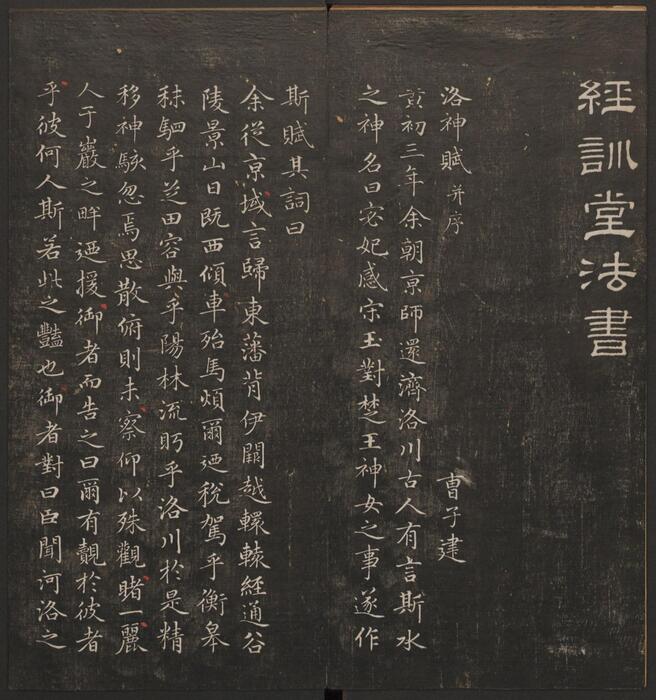 經訓堂法書
洛神賦 并序 曹子建
黃初三年余朝京師還濟洛川古人有言斯水
之神名曰宓妃感宋玉對楚王神女之事遂作
斯賦其詞曰
余從京域言歸東藩背伊闕越轘轅經通谷
陵景山日既西傾車殆馬煩爾迺稅駕乎蘅皋
秣駟乎芝田容與乎陽林流眄乎洛川於是精
移神駭忽焉思散俯則未察仰以殊觀睹一麗
人于巖之畔迺援御者而告之曰爾有覿於彼者
乎彼何人斯若此之豔也御者對曰臣聞河洛之